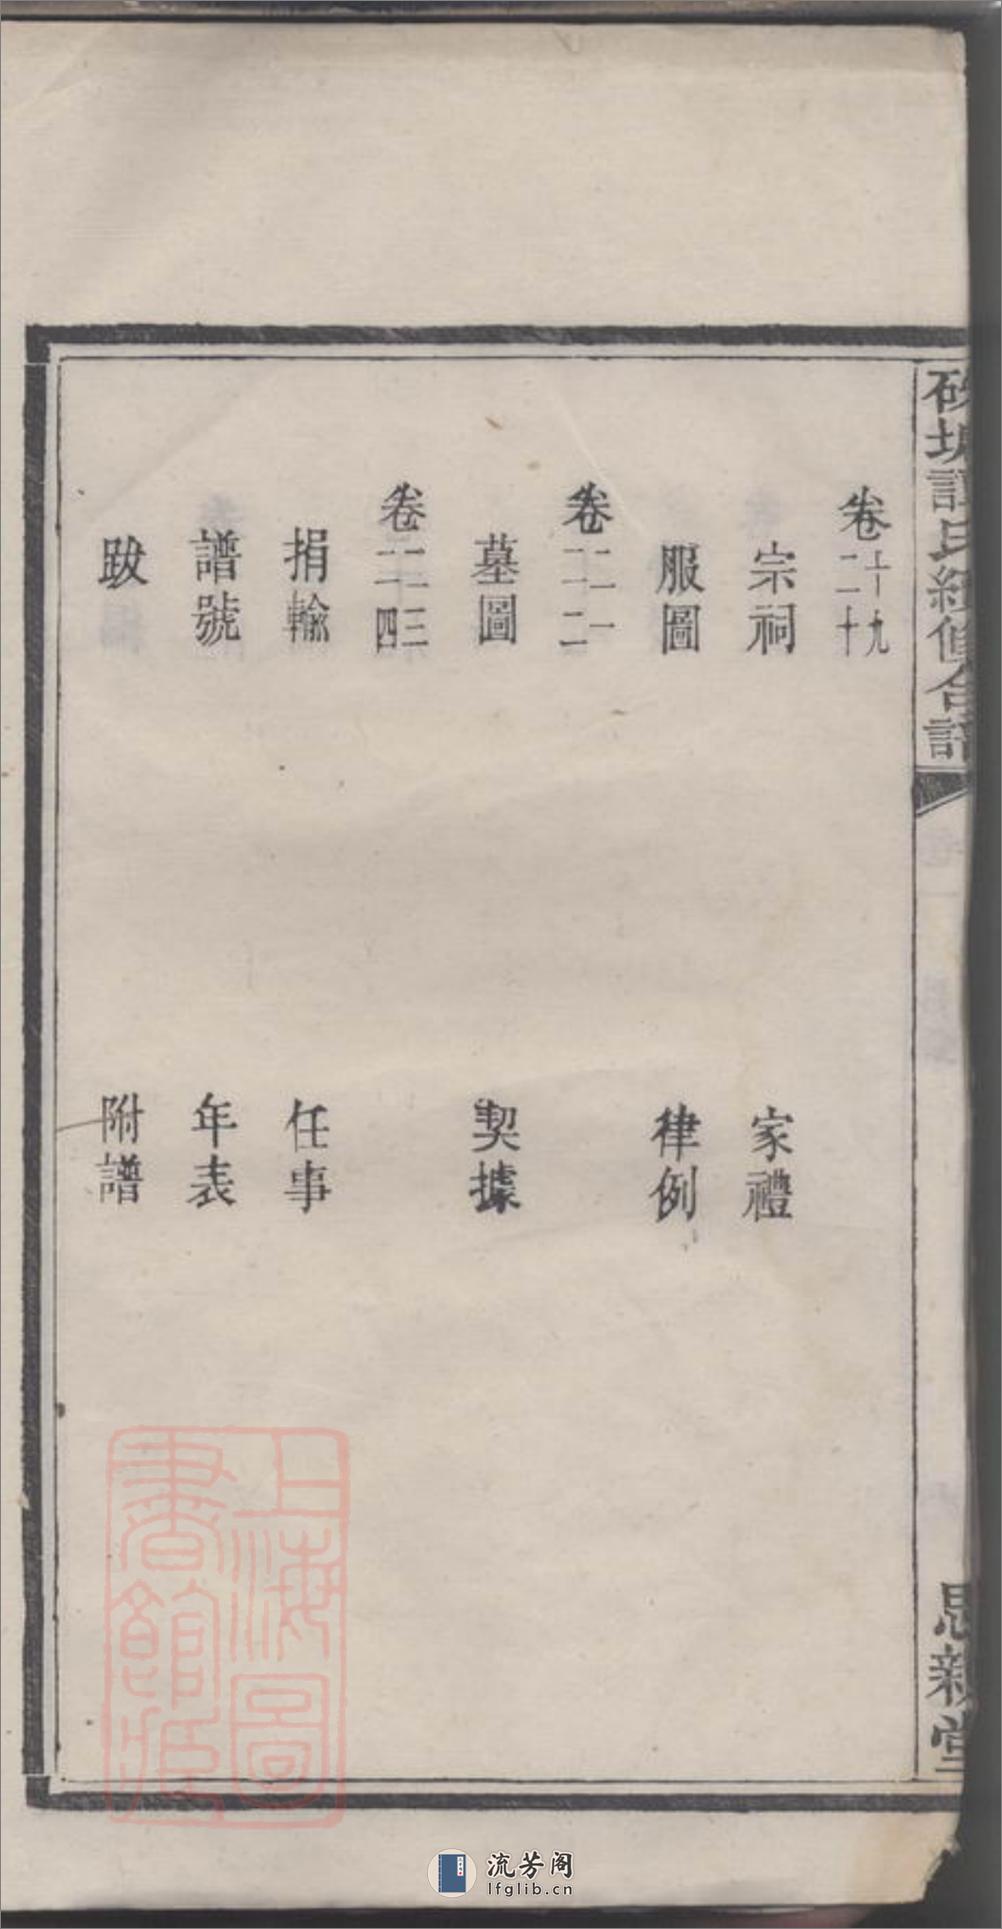 譚氏續修合譜
思親堂
卷十九二十
宗祠 家禮
服圖 律例
卷二一二二
墓圖 契據
卷二三二四
捐輸 任事
譜號 年表
跋 附譜
上海圖書館藏
流芳阁
lfglib.cn